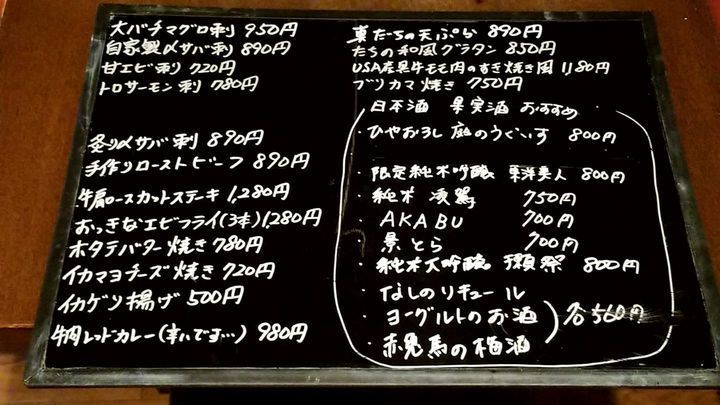 大バチマグロ刺 950円
自家製〆サバ刺 890円
甘エビ刺 720円
トロサーモン刺 780円
炙り〆サバ刺 890円
手作りローストビーフ 890円
牛肩ロースカットステーキ 1,280円
おっきなエビフライ(3本) 1,280円
ホタテバター焼き 780円
イカマヨチーズ焼き 720円
イカゲソ揚げ 500円
牛肉レッドカレー(辛いです…) 980円
真だちの天ぷら 890円
たちの和風グラタン 850円
USA産黒牛モモ肉のすき焼き風 1,180円
ブリカマ焼き 750円
日本酒 果実酒 おすすめ
・ひやおろし 庭のうぐいす 800円
・限定純米吟醸 東洋美人 800円
・純米 凌駕 750円
・AKABU 700円
・景とら 700円
・純米大吟醸 獺祭 800円
・なしのリキュール
・ヨーグルトのお酒
・赤兎馬の梅酒
各560円